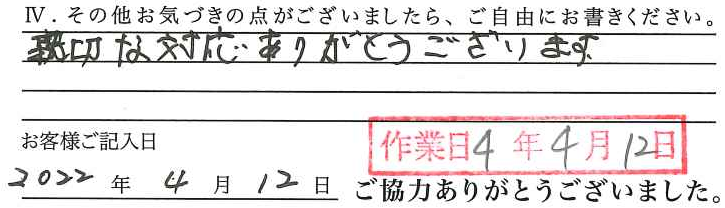 Ⅳ. その他お気づきの点がございましたら、ご自由にお書きください。
親切な対応ありがとうござります
お客様ご記入日
作業日4年4月12日
2022年4月12日
ご協力ありがとうございました。